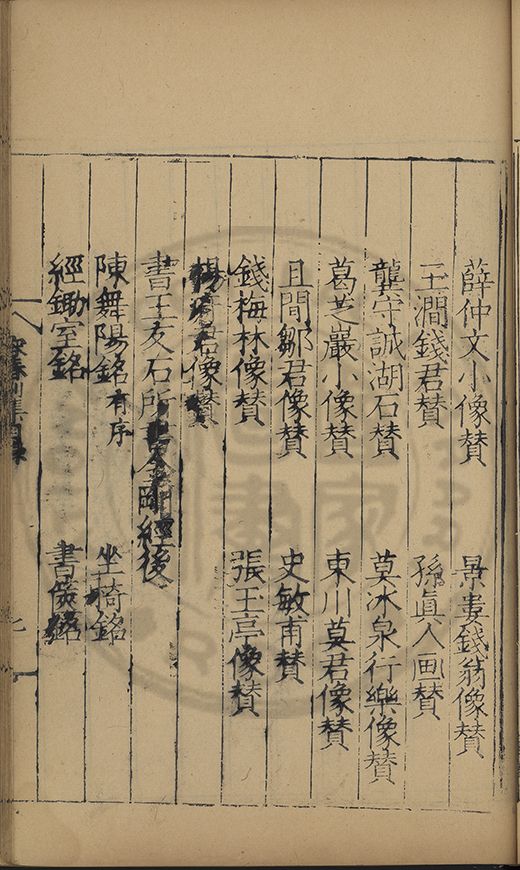 薛仲文小像賛　景婁錢翁像賛
玉澗錢君賛　孫眞人画賛
龔守誠湖石賛　莫冰泉行樂像賛
葛芝巖小像賛　東川莫君像賛
且閒鄒君像賛　史敏甫賛
錢梅林像賛　張玉亭像賛
楊君像賛
書王友石所金剛經後
陳舞陽銘有序　坐椅銘
經鋤室銘　書篋銘